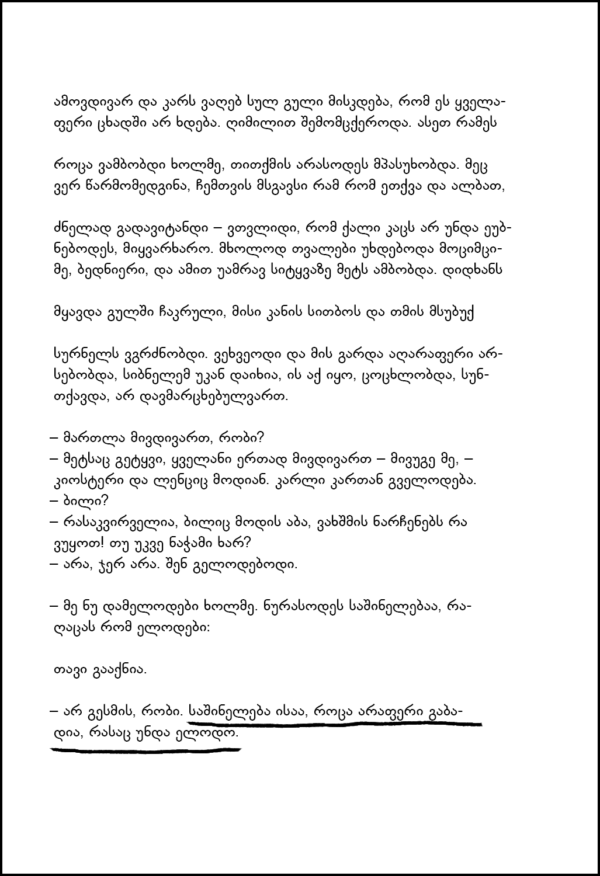 ამოვდივარ და კარს ვაღებ სულ გული მისკდება, რომ ეს ყველა-
ფერი ცხადში არ ხდება. ღიმილით შემომცქეროდა. ასეთ რამეს
როცა ვამბობდი ხოლმე, თითქმის არასოდეს მპასუხობდა. მეც
ვერ წარმომედგინა, ჩემთვის მსგავსი რამ რომ ეთქვა და ალბათ,
ძნელად გადავიტანდი – ვთვლიდი, რომ ქალი კაცს არ უნდა ეუბ-
ნებოდეს, მიყვარხარო. მხოლოდ თვალები უხდებოდა მოციმცი-
მე, ბედნიერი, და ამით უამრავ სიტყვაზე მეტს ამბობდა. დიდხანს
მყავდა გულში ჩაკრული, მისი კანის სითბოს და თმის მსუბუქ
სურნელს ვგრძნობდი. ვეხვეოდი და მის გარდა აღარაფერი არ-
სებობდა, სიბნელემ უკან დაიხია, ის აქ იყო, ცოცხლობდა, სუნ-
თქავდა, არ დავმარცხებულვართ.
– მართლა მივდივართ, რობი?
– მეტსაც გეტყვი, ყველანი ერთად მივდივართ – მივუგე მე, –
კიოსტერი და ლენციც მოდიან. კარლი კართან გველოდება.
– ბილი?
– რასაკვირველია, ბილიც მოდის აბა, ვახშმის ნარჩენებს რა
ვუყოთ! თუ უკვე ნაჭამი ხარ?
– არა, ჯერ არა. შენ გელოდებოდი.
– მე ნუ დამელოდები ხოლმე. ნურასოდეს საშინელებაა, რა-
ღაცას რომ ელოდები:
თავი გააქნია.
– არ გესმის, რობი. საშინელება ისაა, როცა არაფერი გაბა-
დია, რასაც უნდა ელოდო.